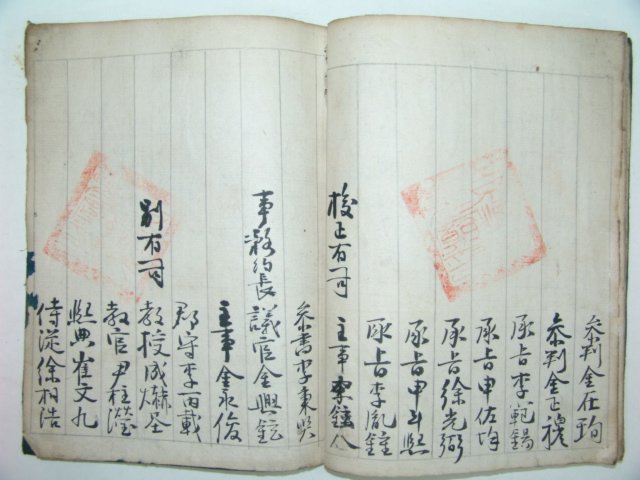 參判金在珣
參判金正穆
承旨李範錫
承旨申佐均
承旨徐光弼
承旨申斗熙
承旨李胤鍾
校正有司 主事 鉉八
參書李東
事務約長 議官金興鉉
主事金永俊
郡守李丙載
別有司 教授成 全
教官尹柱瀅
熙典崔文九
侍從徐相浩